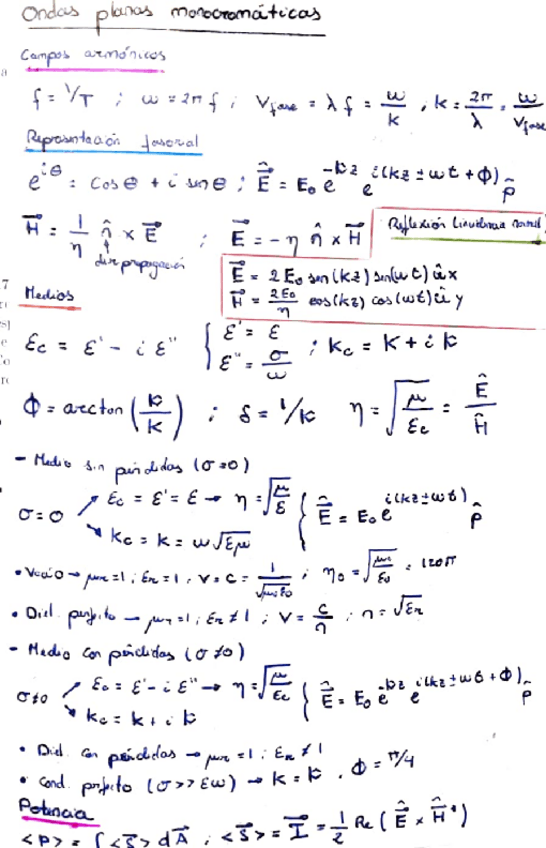 Ondas planas monocromáticas
Campos armónicos
f = 1/T ; ω = 2π f ; V_fase = λ f = ω/k , k = 2π/λ = ω/V_fase
Representación fasorial
e^{iθ} = cos θ + i sen θ ; Ê = E₀ e^{-kz} e^{i(kz ± ωt + Φ)} p̂
H⃗ = 1/η n̂ × E⃗ ; E⃗ = -η n̂ × H⃗
dir propagación
Reflexión incidencia normal
E⃗ = 2 E₀ sen(kz) sen(ωt) û x
H⃗ = 2E₀/η cos(kz) cos(ωt) û y
Medios
ε_c = ε' - i ε'' { ε' = ε ; ε'' = σ/ω ; k_c = k + i k
Φ = arctan (k/k) ; δ = 1/k η = √(μ/ε_c) = Ê/Ĥ
- Medio sin pérdidas (σ=0)
σ = 0 ↗ ε_c = ε' = ε → η = √(μ/ε)
↘ k_c = k = ω √(εμ)
{ Ê = E₀ e^{i(kz±ωt)} p̂
• Vacío → μr = 1 ; εr = 1 ; v = c = 1/√(μ₀ε₀) ; η₀ = √(μ₀/ε₀) = 120π
• Diel. perfecto → μr = 1 ; εr ≠ 1 ; v = c/n ; n = √εr
- Medio con pérdidas (σ ≠ 0)
σ≠0 ↗ ε_c = ε' - i ε'' → η = √(μ/ε_c)
↘ k_c = k + i k
{ Ê = E₀ e^{-kz} e^{i(kz ± ωt + Φ)} p̂
• Diel. con pérdidas → μr = 1 ; εr ≠ 1
• Cond. perfecto (σ >> εω) → k = k , Φ = π/4
Potencia
<P> = ∫ <S⃗> dA⃗ ; <S⃗> = I⃗ = 1/2 Re ( Ê × Ĥ* )